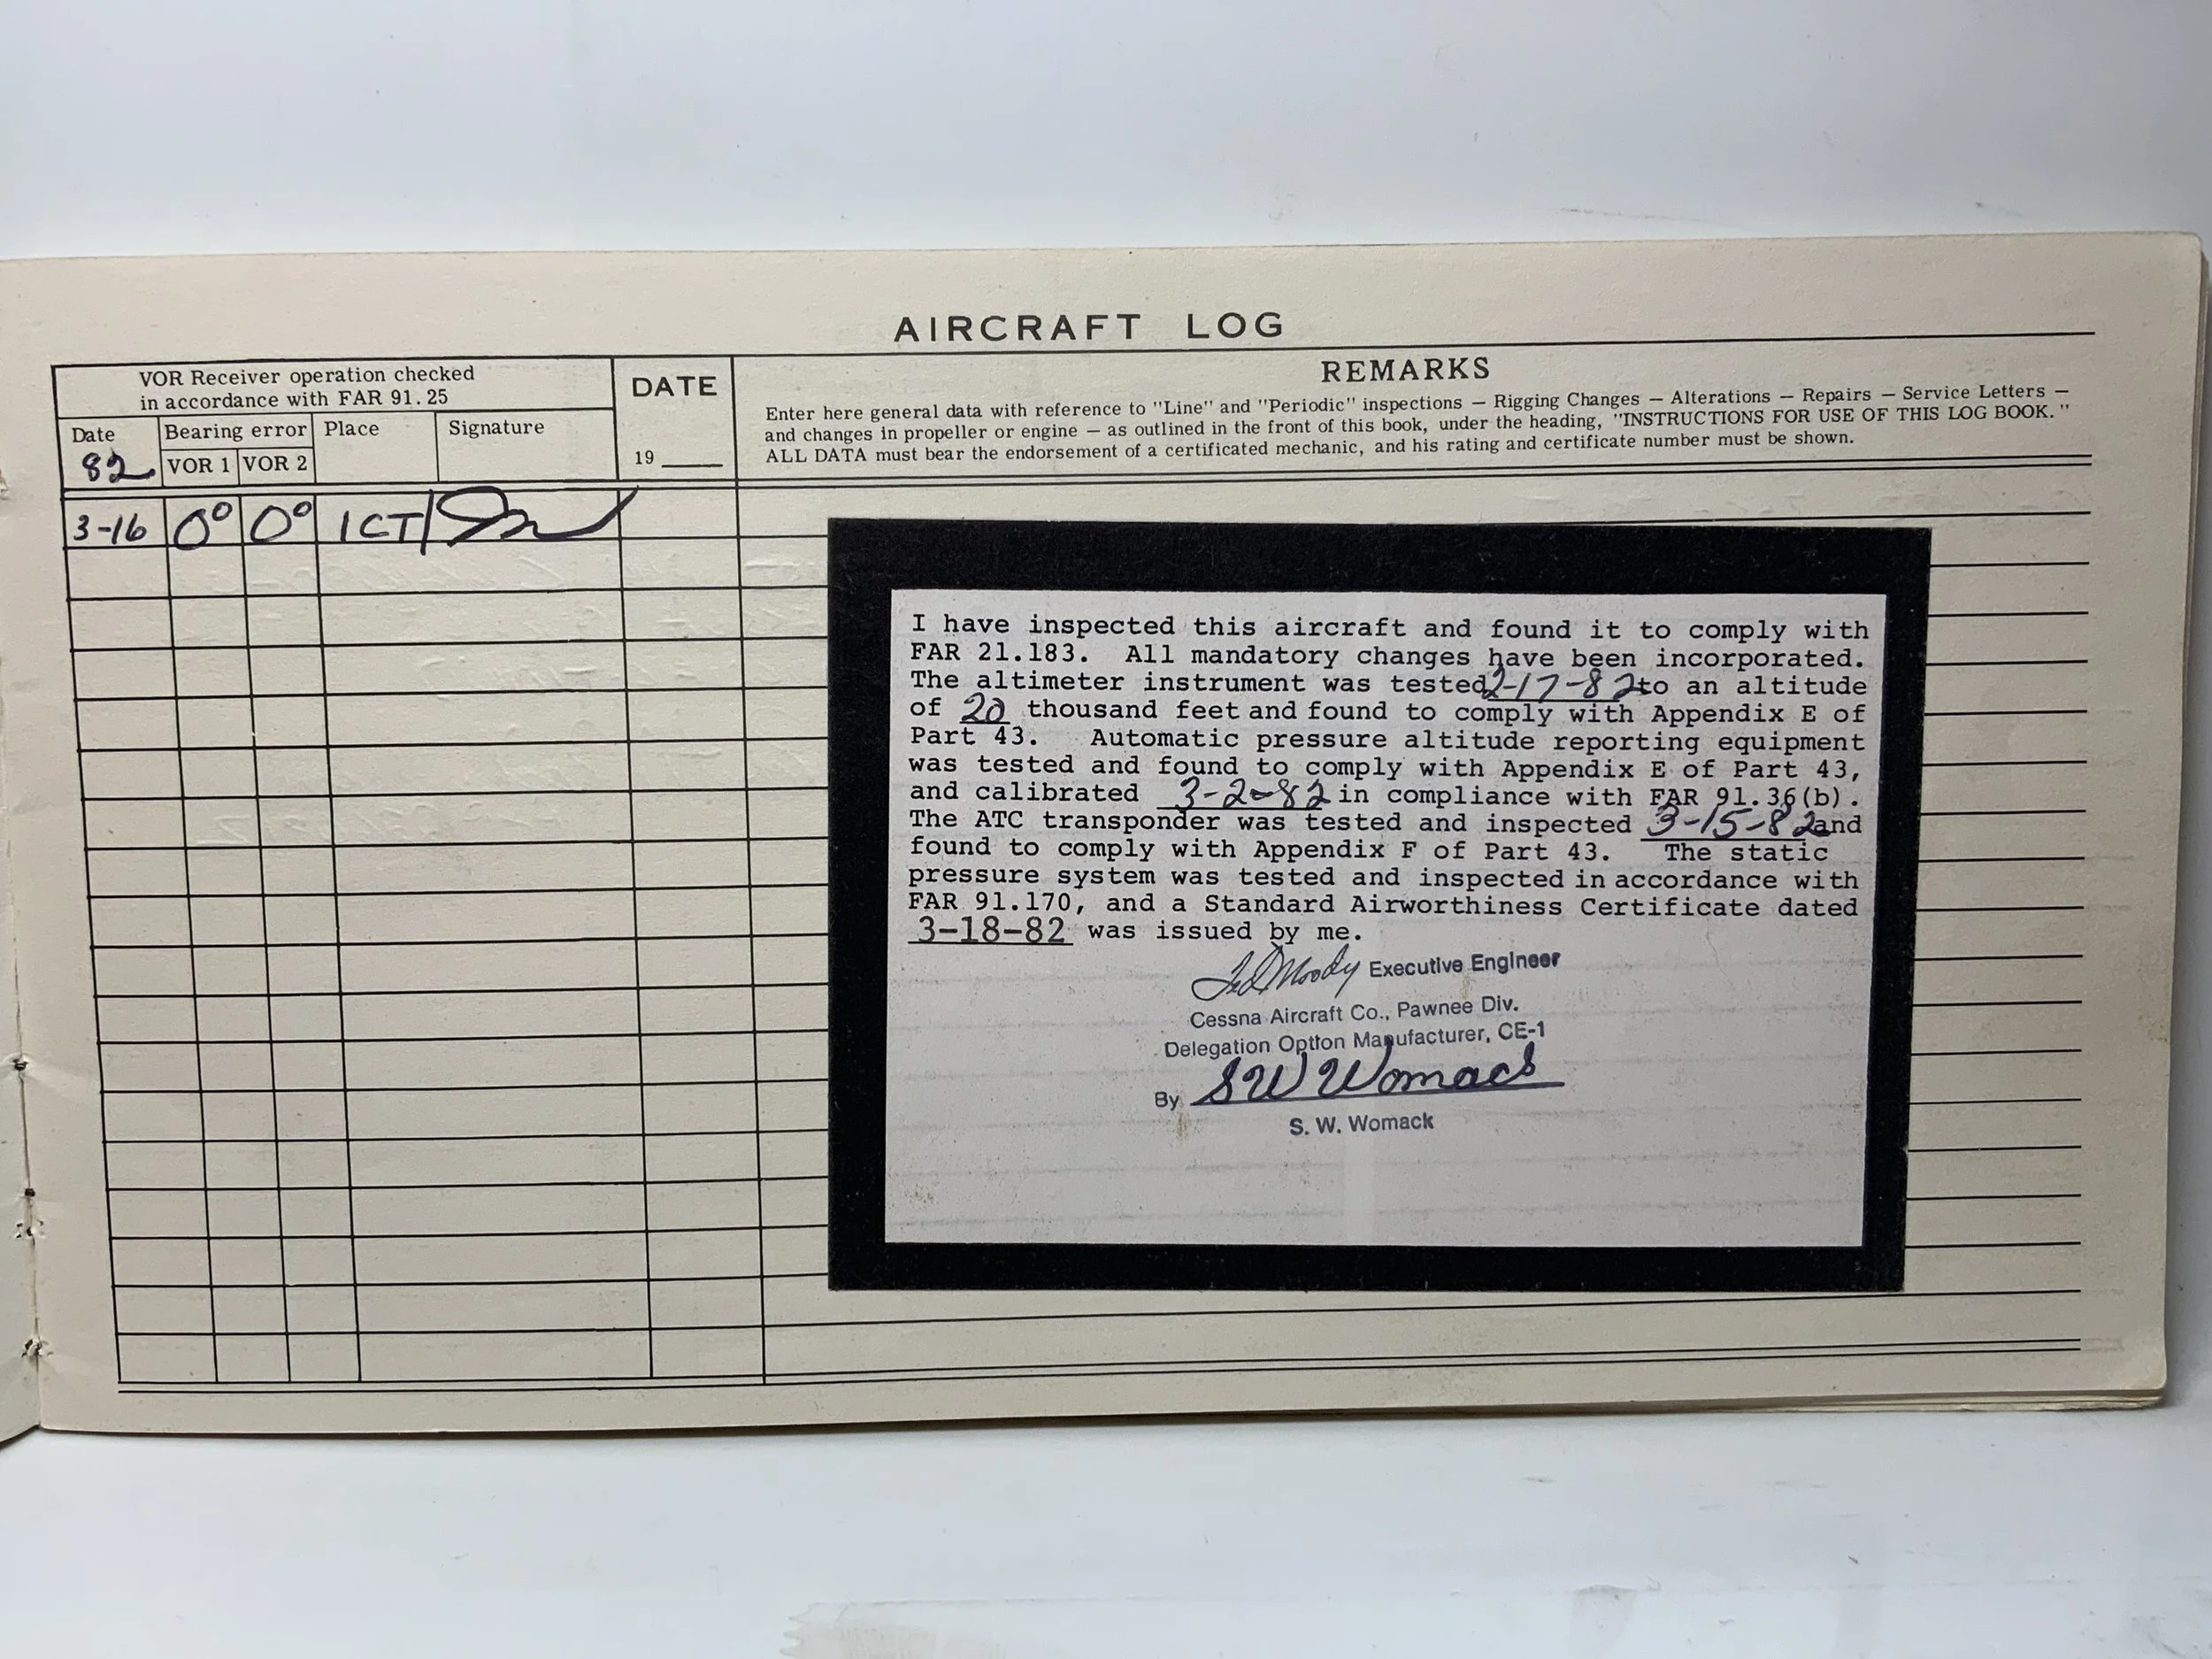 AIRCRAFT LOG
VOR Receiver operation checked
in accordance with FAR 91.25
Date
82
Bearing error
VOR 1 VOR 2
Place
Signature
DATE
19
REMARKS
Enter here general data with reference to "Line" and "Periodic" inspections — Rigging Changes — Alterations — Repairs — Service Letters —
and changes in propeller or engine — as outlined in the front of this book, under the heading, "INSTRUCTIONS FOR USE OF THIS LOG BOOK."
ALL DATA must bear the endorsement of a certificated mechanic, and his rating and certificate number must be shown.
3-16 0° 0° ICT
I have inspected this aircraft and found it to comply with
FAR 21.183. All mandatory changes have been incorporated.
The altimeter instrument was tested 2-17-82 to an altitude
of 20 thousand feet and found to comply with Appendix E of
Part 43. Automatic pressure altitude reporting equipment
was tested and found to comply with Appendix E of Part 43,
and calibrated 3-2-82 in compliance with FAR 91.36(b).
The ATC transponder was tested and inspected 3-15-82 and
found to comply with Appendix F of Part 43. The static
pressure system was tested and inspected in accordance with
FAR 91.170, and a Standard Airworthiness Certificate dated
3-18-82 was issued by me.
Moody Executive Engineer
Cessna Aircraft Co., Pawnee Div.
Delegation Option Manufacturer, CE-1
By S W Womack
S. W. Womack